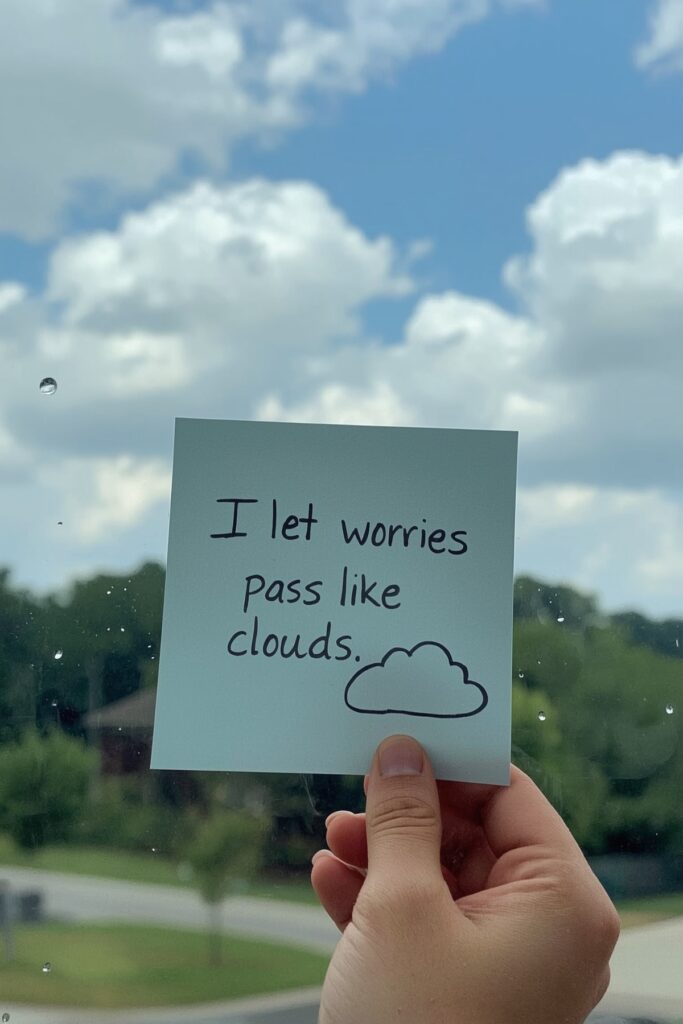 I let worries
pass like
clouds.